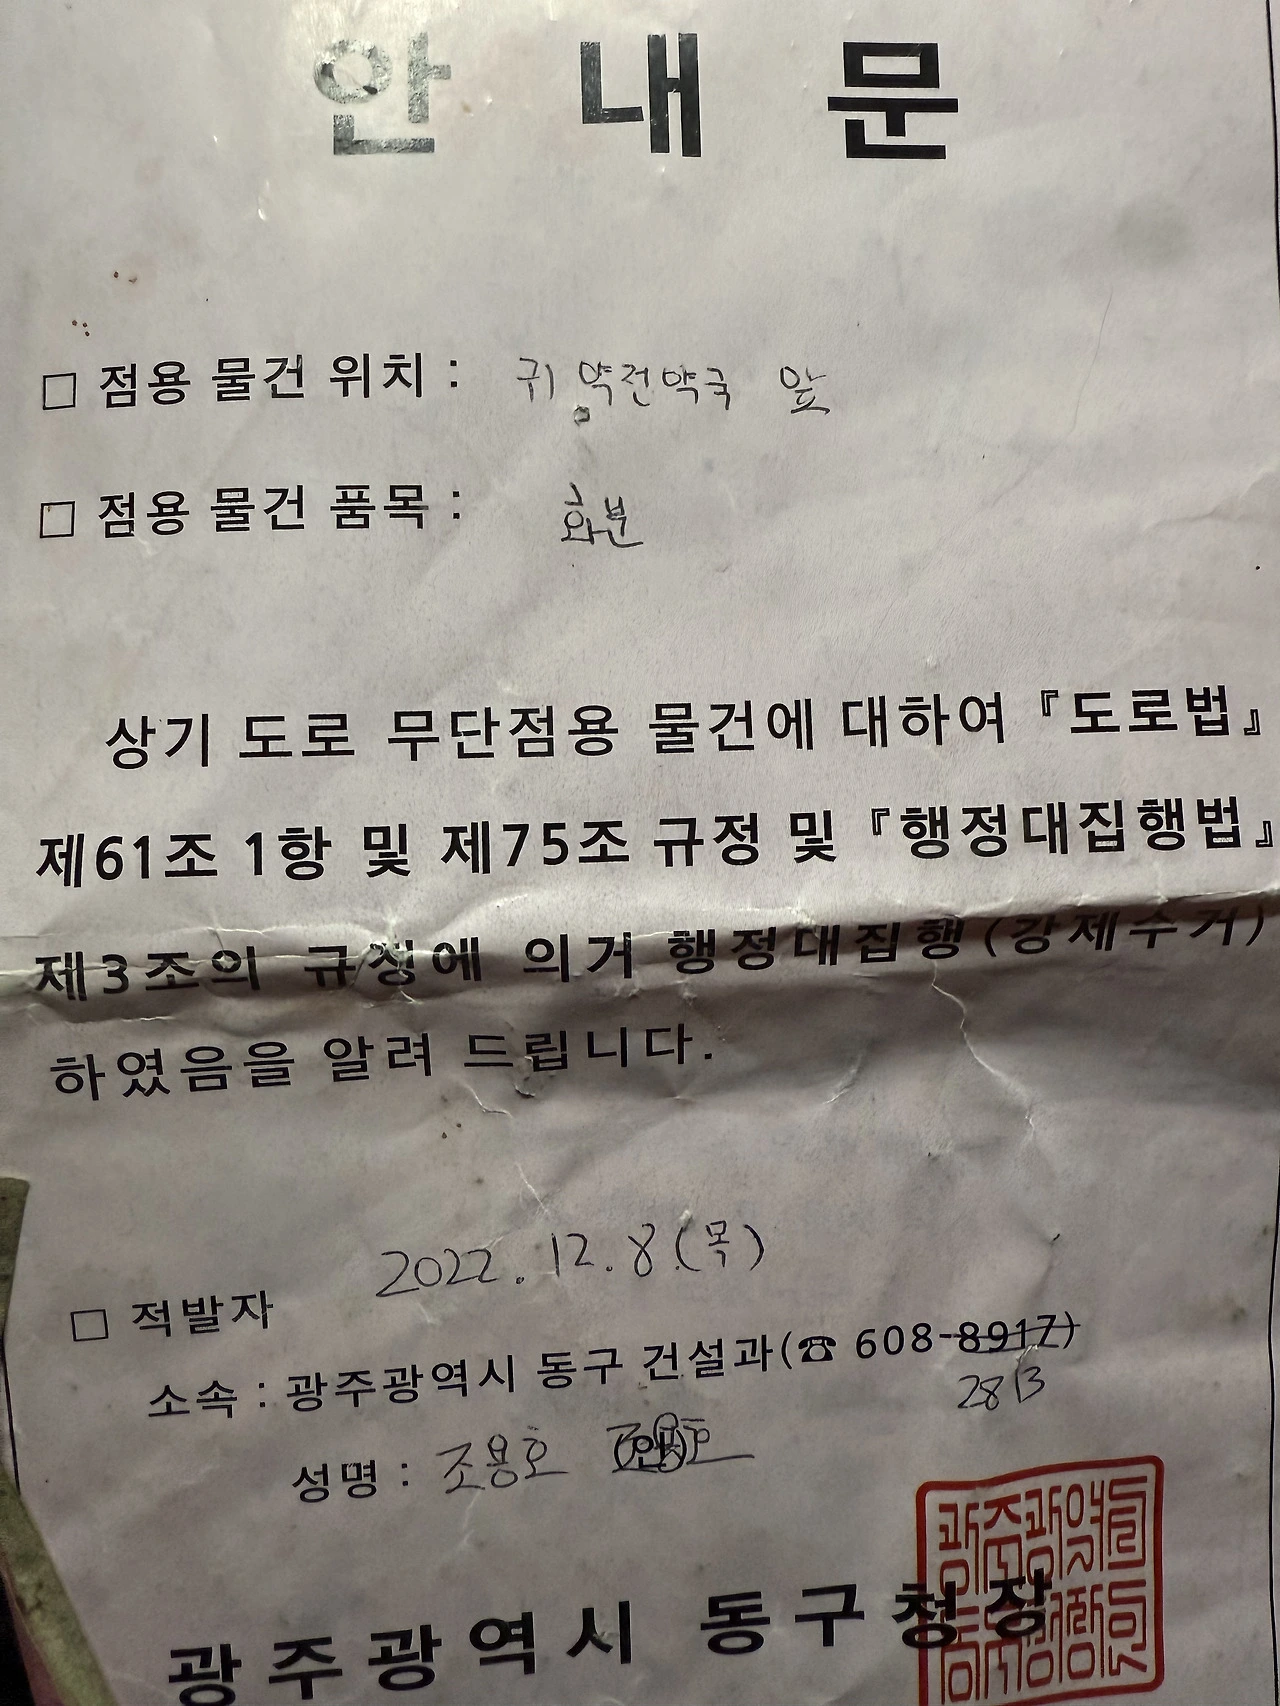 안 내 문
□ 점용 물건 위치 : 귀 약전약국 앞
□ 점용 물건 품목 : 화분
상기 도로 무단점용 물건에 대하여 『도로법』
제61조 1항 및 제75조 규정 및 『행정대집행법』
제3조의 규정에 의거 행정대집행(강제수거)
하였음을 알려 드립니다.
2022. 12. 8.(목)
□ 적발자
소속 : 광주광역시 동구 건설과(☎ 608-8917)
2813
성명 : 조용호 (인)
광주광역시 동구청장